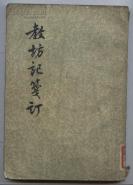 教坊記箋訂